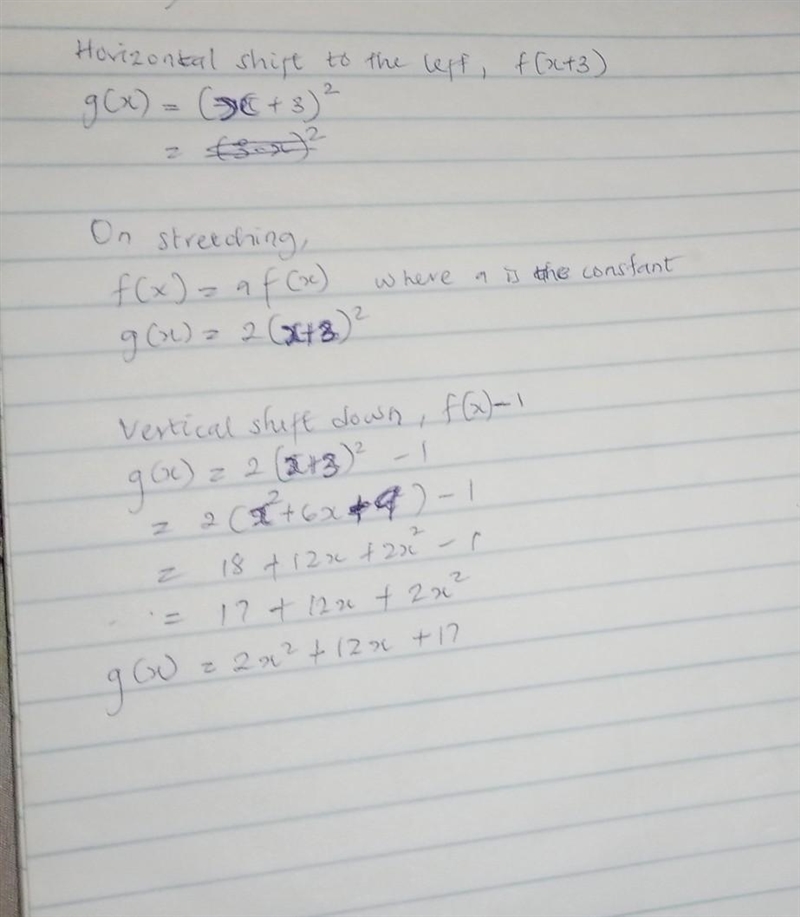 Horizontal shift to the left, f(x+3)
g(x) = (x + 3)²
= (3-x)²
On stretching,
f(x) = a f(x) where a is the constant
g(x) = 2(x+3)²
Vertical shift down, f(x)-1
g(x) = 2(x+3)² - 1
= 2(x²+6x+9) - 1
= 18 + 12x + 2x² - 1
= 17 + 12x + 2x²
g(x) = 2x² + 12x + 17